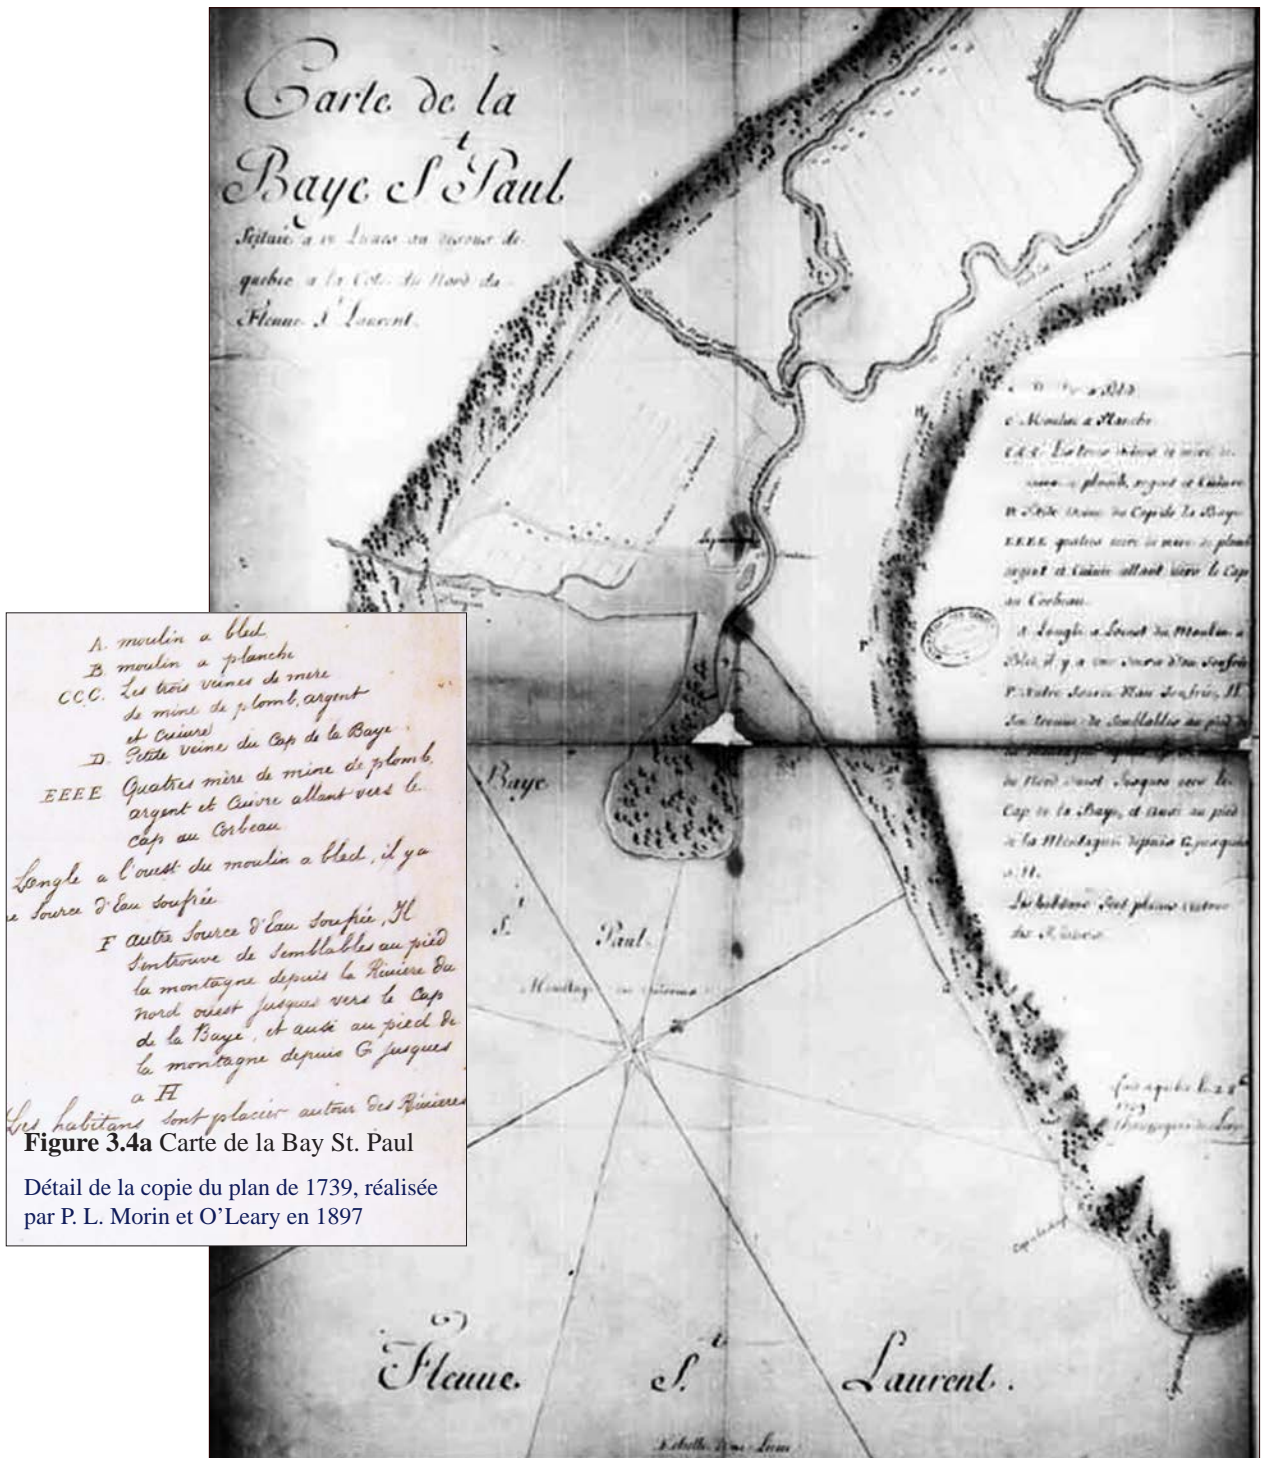 Carte de la
Baye St Paul
Scituée a 18 Lieues au dessous de
quebec a la Coste du Nord du
Fleuue St Laurent.
C Moulin a Planche
plomb, argent et Cuiure
D Petite Veine du Cap de la Baye
EEEE quatres mere de mine de plomb
argent et Cuiure allant vers le Cap
au Corbeau.
A Langle a Louest du Moulin a
Bled, il y a une Source d'Eau Soufrée
F Autre Source d'Eau Soufrée, Il
S'en trouue de Semblables au pied de
du Nord ouest Jusques vers le
Cap de la Baye, et aussi au pied
de la Montagne depuis G jusques
a H.
Les habitans Sont placés autour
des Riuieres
A. moulin a bled
B. moulin a planche
CCC. Les trois veines de mere
de mine de plomb, argent
et Cuiure
D. Petite veine du Cap de la Baye.
EEEE Quatres mère de mine de plomb,
argent et Cuivre allant vers le
Cap au Corbeau
Langle a l'ouest du moulin a bled, il y a
e Source d'Eau Soufrée
F autre Source d'Eau Soufrée, Il
S'entrouve de Semblables au pied
la montagne depuis la Riviere du
nord ouest Jusques vers le Cap
de la Baye, et aussi au pied de
la montagne depuis G jusques
a H
Les habitans sont placier autour des Rivieres
Figure 3.4a Carte de la Bay St. Paul
Détail de la copie du plan de 1739, réalisée
par P. L. Morin et O'Leary en 1897
Baye
St.
Paul.
Mouillage
G
H
F
1739
Fleuue St. Laurent.
Echelle d'une Lieue